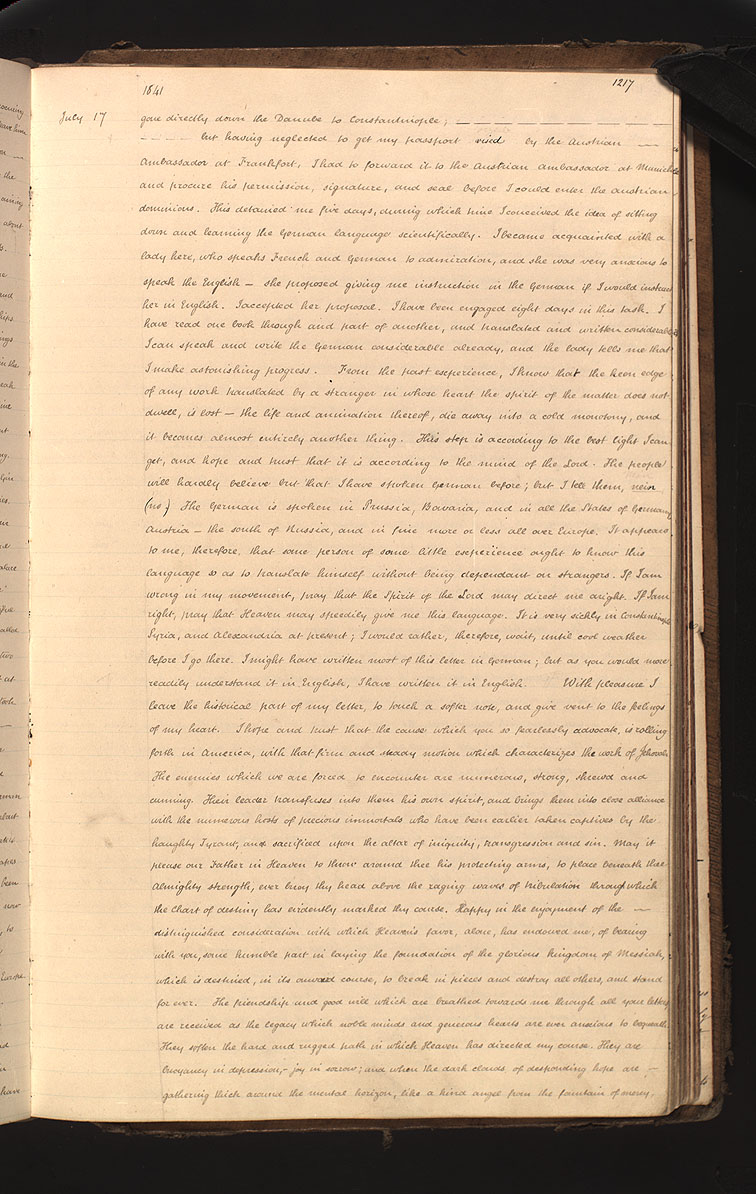 1841
1217
July 17
gone directly down the Danube to Constantinople; — — — — — — — — — —
— — — but having neglected to get my passport viséd by the Austrian —
Ambassador at Frankfort, I had to forward it to the Austrian ambassador at Munich
and procure his permission, signature, and seal before I could enter the Austrian
dominions. This detained me five days, during which time I conceived the idea of sitting
down and learning the German language scientifically. I became acquainted with a
lady here, who speaks French and German to admiration, and she was very anxious to
speak the English — she proposed giving me instruction in the German if I would instruct
her in English. I accepted her proposal. I have been engaged eight days in this task. I
have read one book through and part of another, and translated and written considerable
I can speak and write the German considerable already, and the lady tells me that
I make astonishing progress. From the past experience, I know that the keen edge
of any work translated by a stranger in whose heart the spirit of the matter does not
dwell, is lost — the life and animation thereof, die away into a cold monotony, and
it becomes almost entirely another thing. This step is according to the best light I can
get, and hope and trust that it is according to the mind of the Lord. The people
will hardly believe but that I have spoken German before; but I tell them, nein
(no) The German is spoken in Prussia, Bavaria, and in all the States of Germany,
Austria — the south of Russia, and in fine more or less all over Europe. It appears
to me, therefore, that some person of some little experience ought to know this
language so as to translate himself without being dependant on strangers. If I am
wrong in my movement, pray that the Spirit of the Lord may direct me aright. If I am
right, pray that Heaven may speedily give me this language. It is very sickly in Constantinople
Syria, and Alexandria at present; I would rather, therefore, wait, until cool weather
before I go there. I might have written most of this letter in German; but as you would more
readily understand it in English, I have written it in English. With pleasure I
leave the historical part of my letter, to touch a softer note, and give vent to the feelings
of my heart. I hope and trust that the cause which you so fearlessly advocate, is rolling
forth in America, with that firm and steady motion which characterizes the work of Jehovah.
The enemies which we are forced to encounter are numerous, strong, shrewd and
cunning. Their leader transfuses into them his own spirit, and brings them into close alliance
with the numerous hosts of precious immortals who have been earlier taken captives by the
haughty Tyrant, and sacrificed upon the altar of iniquity, transgression and sin. May it
please our Father in Heaven to throw around thee his protecting arms, to place beneath thee
Almighty strength, ever buoy thy head above the raging waves of tribulation through which
the chart of destiny has evidently marked thy course. Happy in the enjoyment of the —
distinguished consideration with which Heaven's favor, alone, has endowed me, of bearing
with you, some humble part in laying the foundation of the glorious Kingdom of Messiah,
which is destined, in its onward course, to break in pieces and destroy all others, and stand
for ever. The friendship and good will which are breathed towards me through all your letters
are received as the legacy which noble minds and generous hearts are ever anxious to bequeath.
They soften the hard and rugged path in which Heaven has directed my course. They are
buoyancy in depression, – joy in sorrow; and when the dark clouds of desponding hope are —
gathering thick around the mental horizon, like a kind angel from the fountain of mercy,